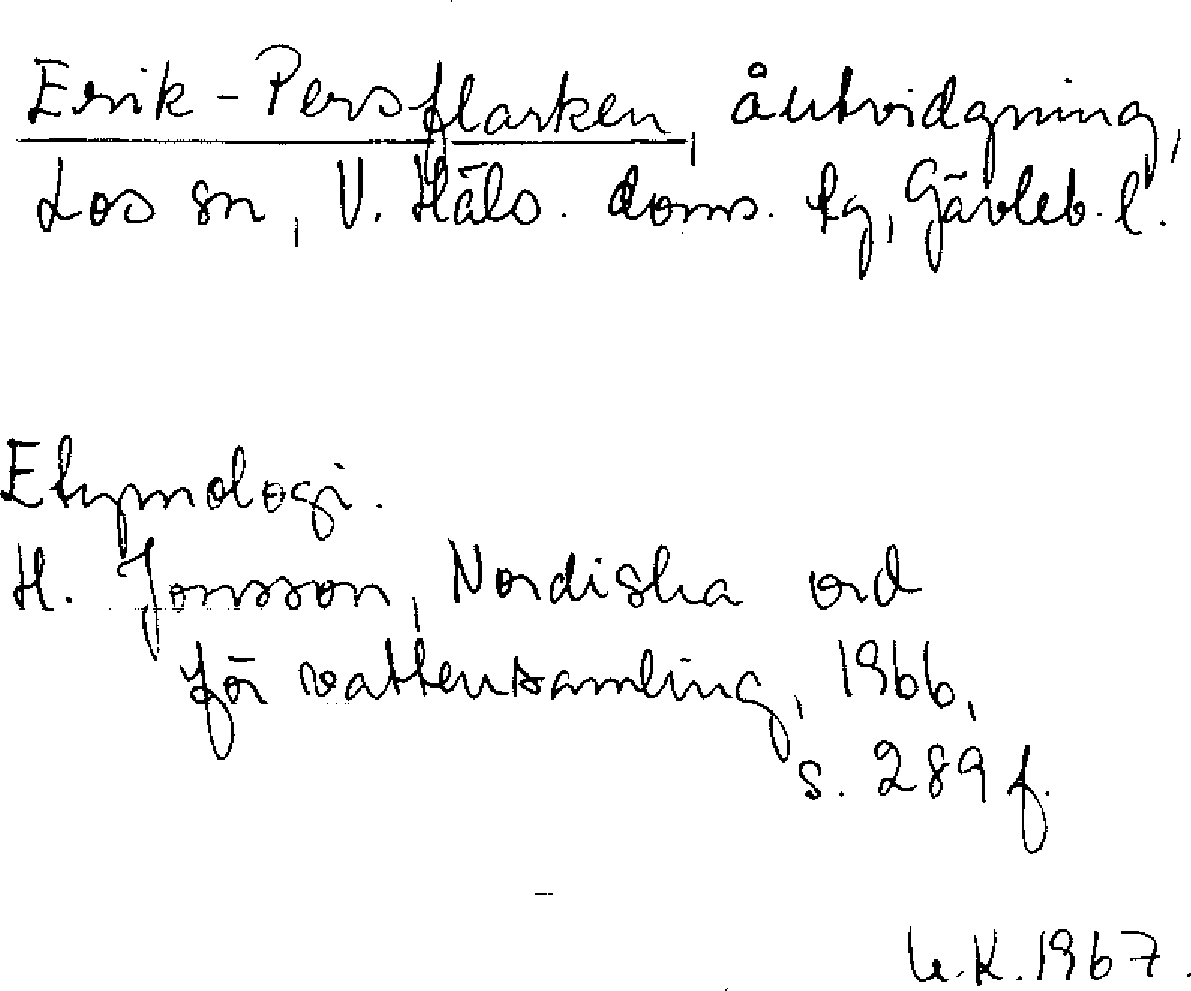 Erik-Persflarken, åutvidgning,
Los sn, V. Häls. doms. lg, Gävleb. l.
Etymologi.
H. Jonsson, Nordiska ord
för vattensamling, 1966,
s. 289 f.
K. 1967.